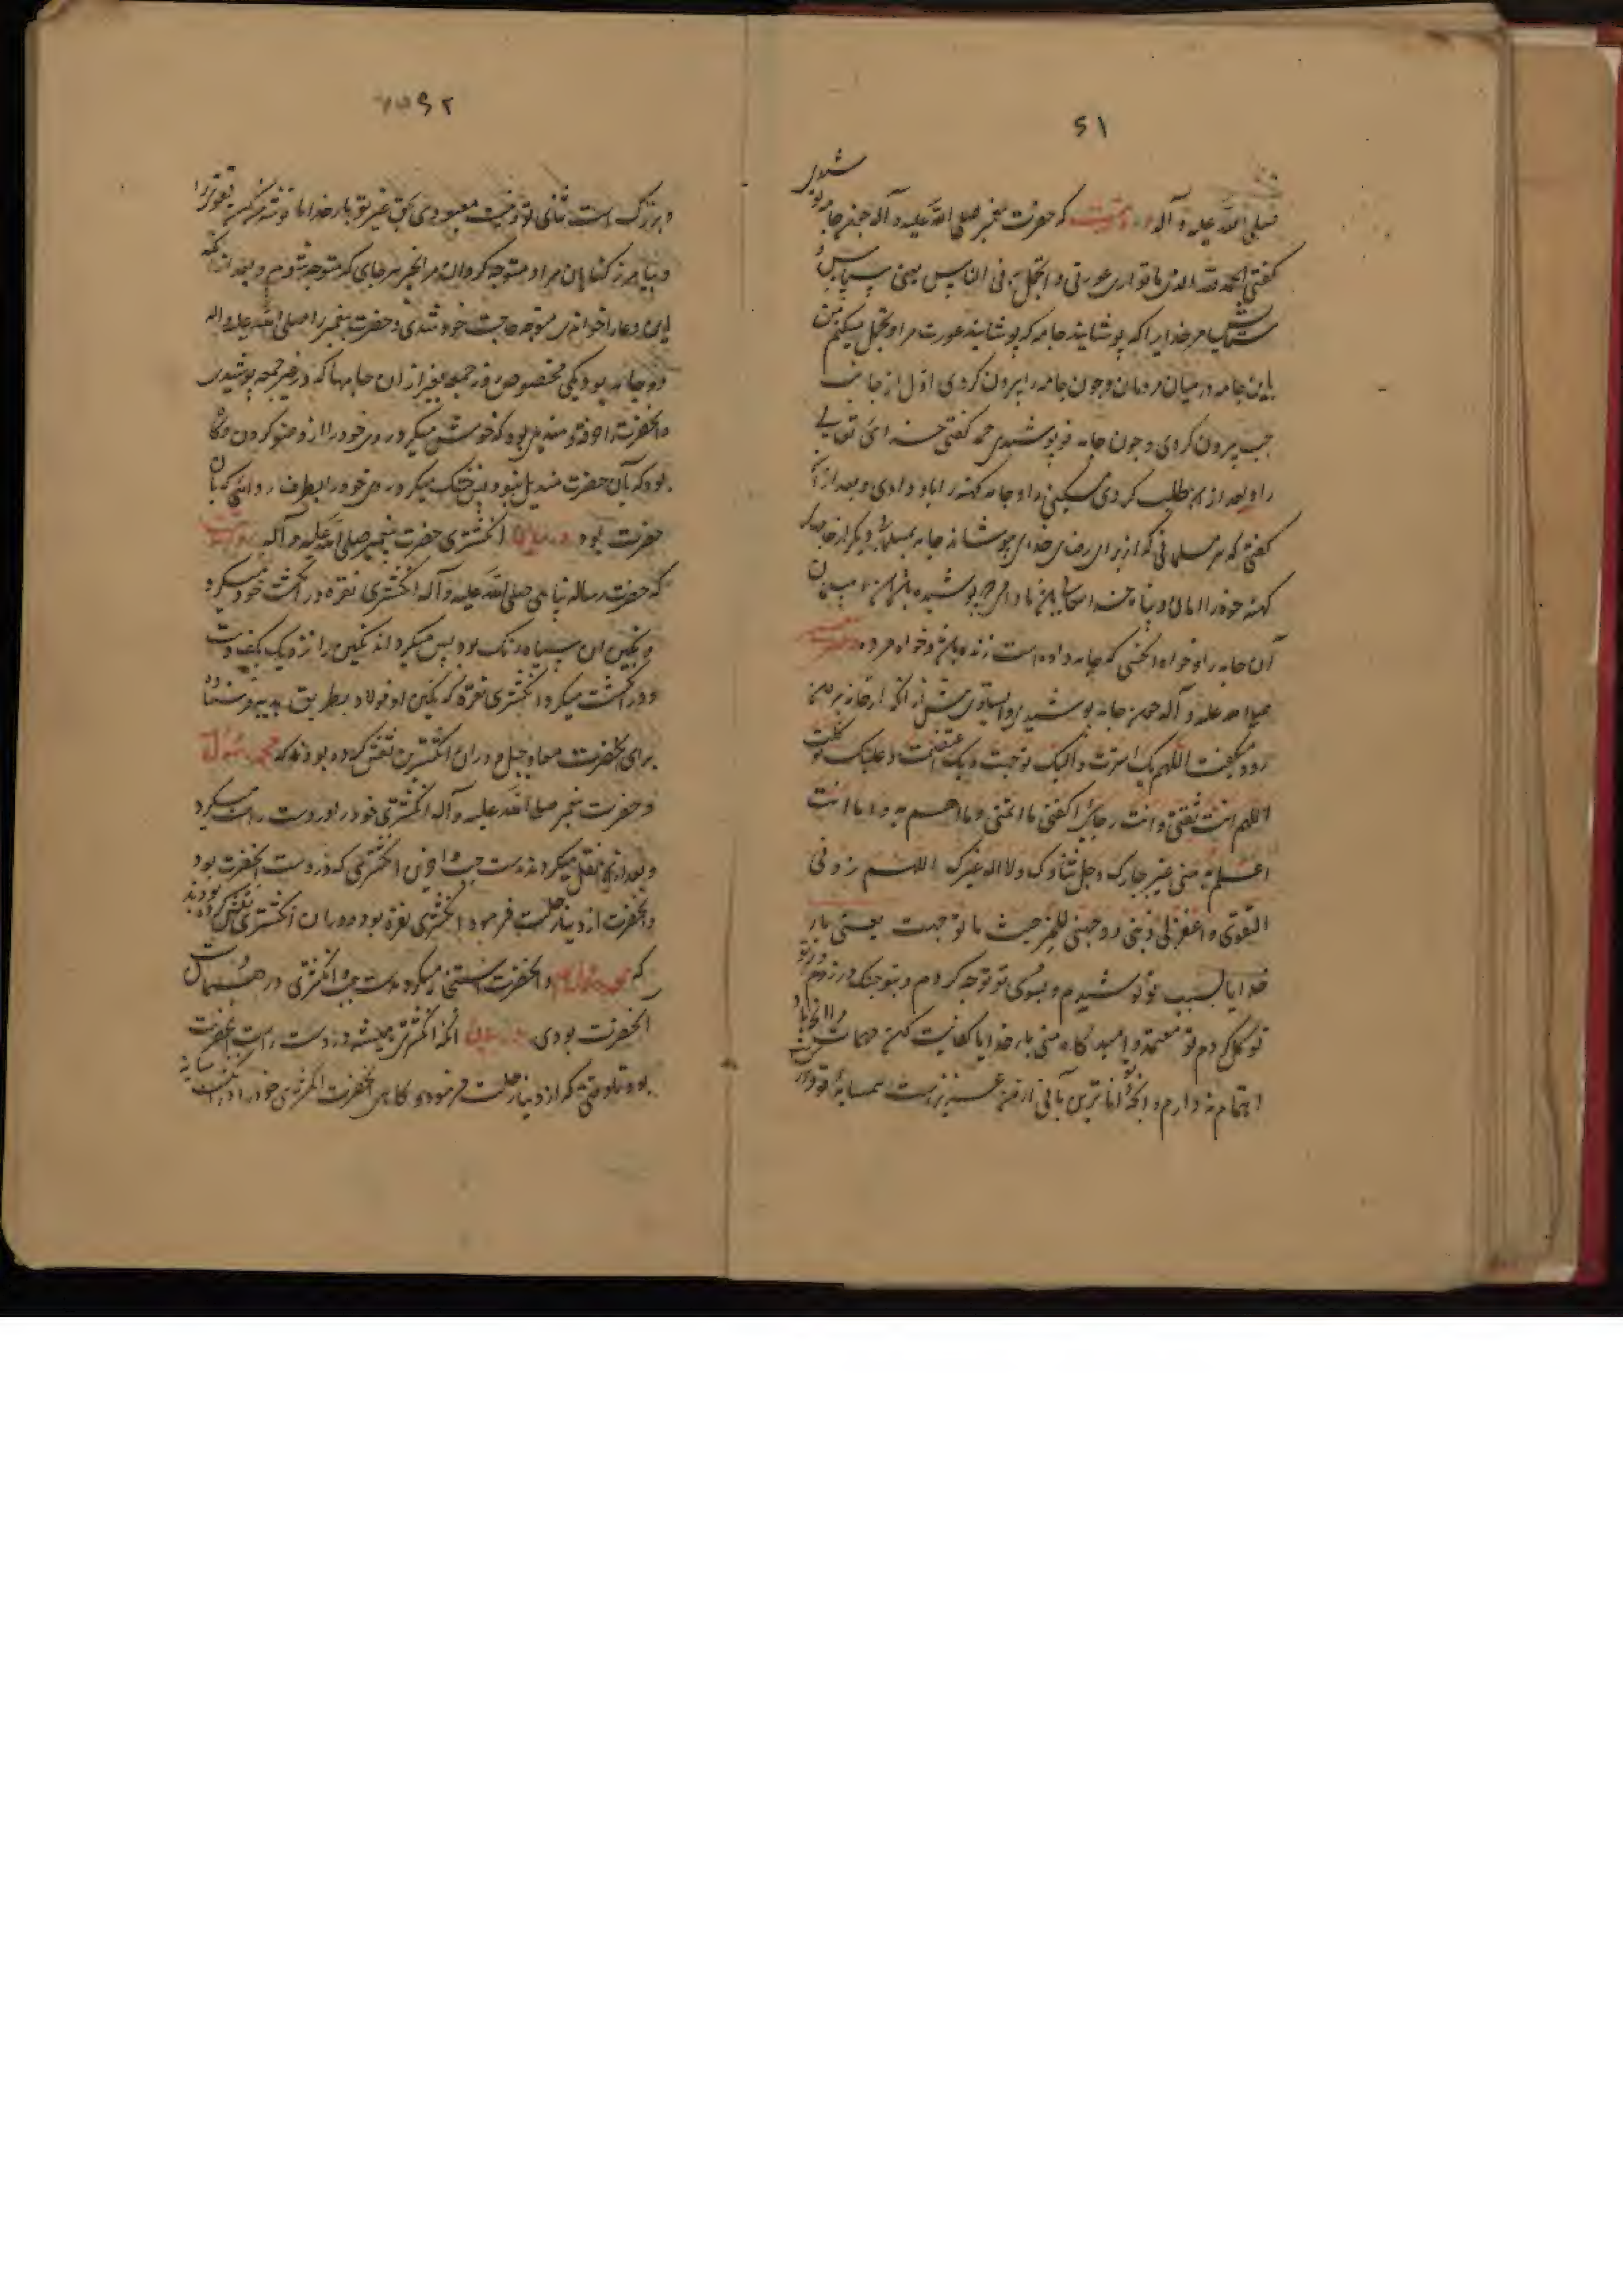 ۶۱
صلی الله علیه و آله که حضرت پیغمبر صلی الله علیه و آله چون جامه نو پوشیدی
گفتی الحمد لله الذی ما تواری عورتی و اتجمل به فی الناس یعنی سپاس
ستایش مر خدایرا که پوشانید جامه که پوشانید عورت مرا و تجمل میکنم من
باین جامه در میان مردمان و چون جامه را بیرون کردی اول از جانب
چپ بیرون کردی و چون جامه نو پوشیدی حمد گفتی خدای تعالی
را و بعد از آن طلب کردی مسکینی را و جامه کهنه را باو دادی و بعد از آن
گفتی که هر مسلمانی که از برای رضای خدای پوشاند جامه بمسلمانی دیگر از جامه
کهنه خود در امان و پناه خدا
آن جامه را و خواه آنکسی که جامه داده است زنده باشد و خواه مرده
صلی الله علیه و آله چون جامه پوشیدی و ایستادی پیش از آنکه از خانه بیرون
رود میگفت اللهم بک استترت و الیک توجهت و بک اعتصمت و علیک توکلت
اللهم انت ثقتی و انت رجائی اکفنی ما اهمنی و ما لا اهتم به و ما انت
اعلم به منی عز جارک و جل ثناؤک و لا اله غیرک اللهم زودنی
التقوی و اغفر لی ذنبی و وجهنی للخیر حیث ما توجهت یعنی بار
خدایا بسبب تو پوشیدم و بسوی تو توجه کردم و بتو چنک در زدم و بر تو
توکل کردم تو معتمد و امیدگاه منی بار خدایا کفایت کن مهمات
اهتمام ندارم و آنچه تو داناتری بآن از من عزیز است همسایه تو
۶۲
و بزرک است ثنای تو و نیست معبودی بحق غیر تو بار خدایا توشه من کن تقوی را
و بیامرز گناهان مرا و متوجه گردان مرا بخیر هر جای که متوجه شوم و بعد از آنکه
این دعا را خواندی متوجه حاجت خود شدی و حضرت پیغمبر را صلی الله علیه و آله
دو جامه بود یکی مخصوص روز جمعه بغیر از آن جامها که در غیر جمعه پوشیدی
و آنحضرت را خرقه و مندیلی بود که خوشک میکرد روی خود را از وضو کردن و گاه
بود که بآن حضرت مندیل نبود پس خشک میکرد روی خود را بطرف ردائی که با آن
حضرت بود در بیان انکشتری حضرت پیغمبر صلی الله علیه و آله
که حضرت رسالت پناهی صلی الله علیه و آله انکشتری نقره در انکشت خود میکرد
و نکین آن سیاه رنک بود پس میکردانید نکین را نزدیک بکف دست
و در انکشت میکرد انکشتری نقره که نکین او فولاد بطریق هدیه فرستاده
برای آنحضرت معاذ جبل و در آن انکشترین نقش کرده بودند که محمد رسول
و حضرت پیغمبر صلی الله علیه و آله انکشتری خود را در دست راست میکرد
و بعد از آن نقل میکرد بدست چپ و آخرین انکشتری که در دست آنحضرت بود
و آنحضرت از دنیا رحلت فرمود انکشتری نقره بود و در آن انکشتری نقش کرده بودند
که محمد رسول الله و آنحضرت استنجا میکرد بدست چپ و انکشتری در
آنحضرت بودی در بیان آنکه انکشتری همیشه در دست راست آنحضرت
بود تا وقتی که از دنیا رحلت فرمود و گاهی آنحضرت انکشتری خود را در انکشت